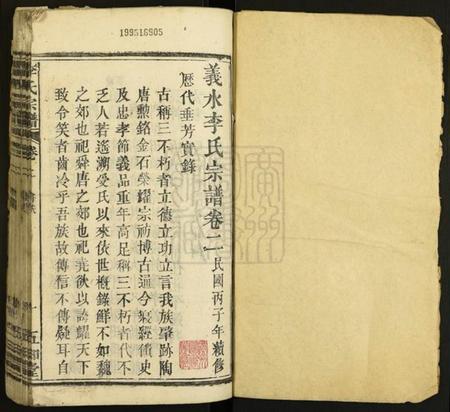 199516805
義水李氏宗譜卷二 民國丙子年續修
歷代垂芳實錄
古稱三不朽者立德立功立言我族肇跡陶
唐勲銘金石榮耀宗祊博古通今氣經術史
及忠孝節義品重年高足稱三不朽者代不
乏人若遙溯受氏以來依世概錄鮮不如魏
之郊也祀舜唐之郊也祀堯欲以誇耀天下
致令笑者齒冷乎吾族故傳信不傳疑耳自
李氏宗譜 卷二